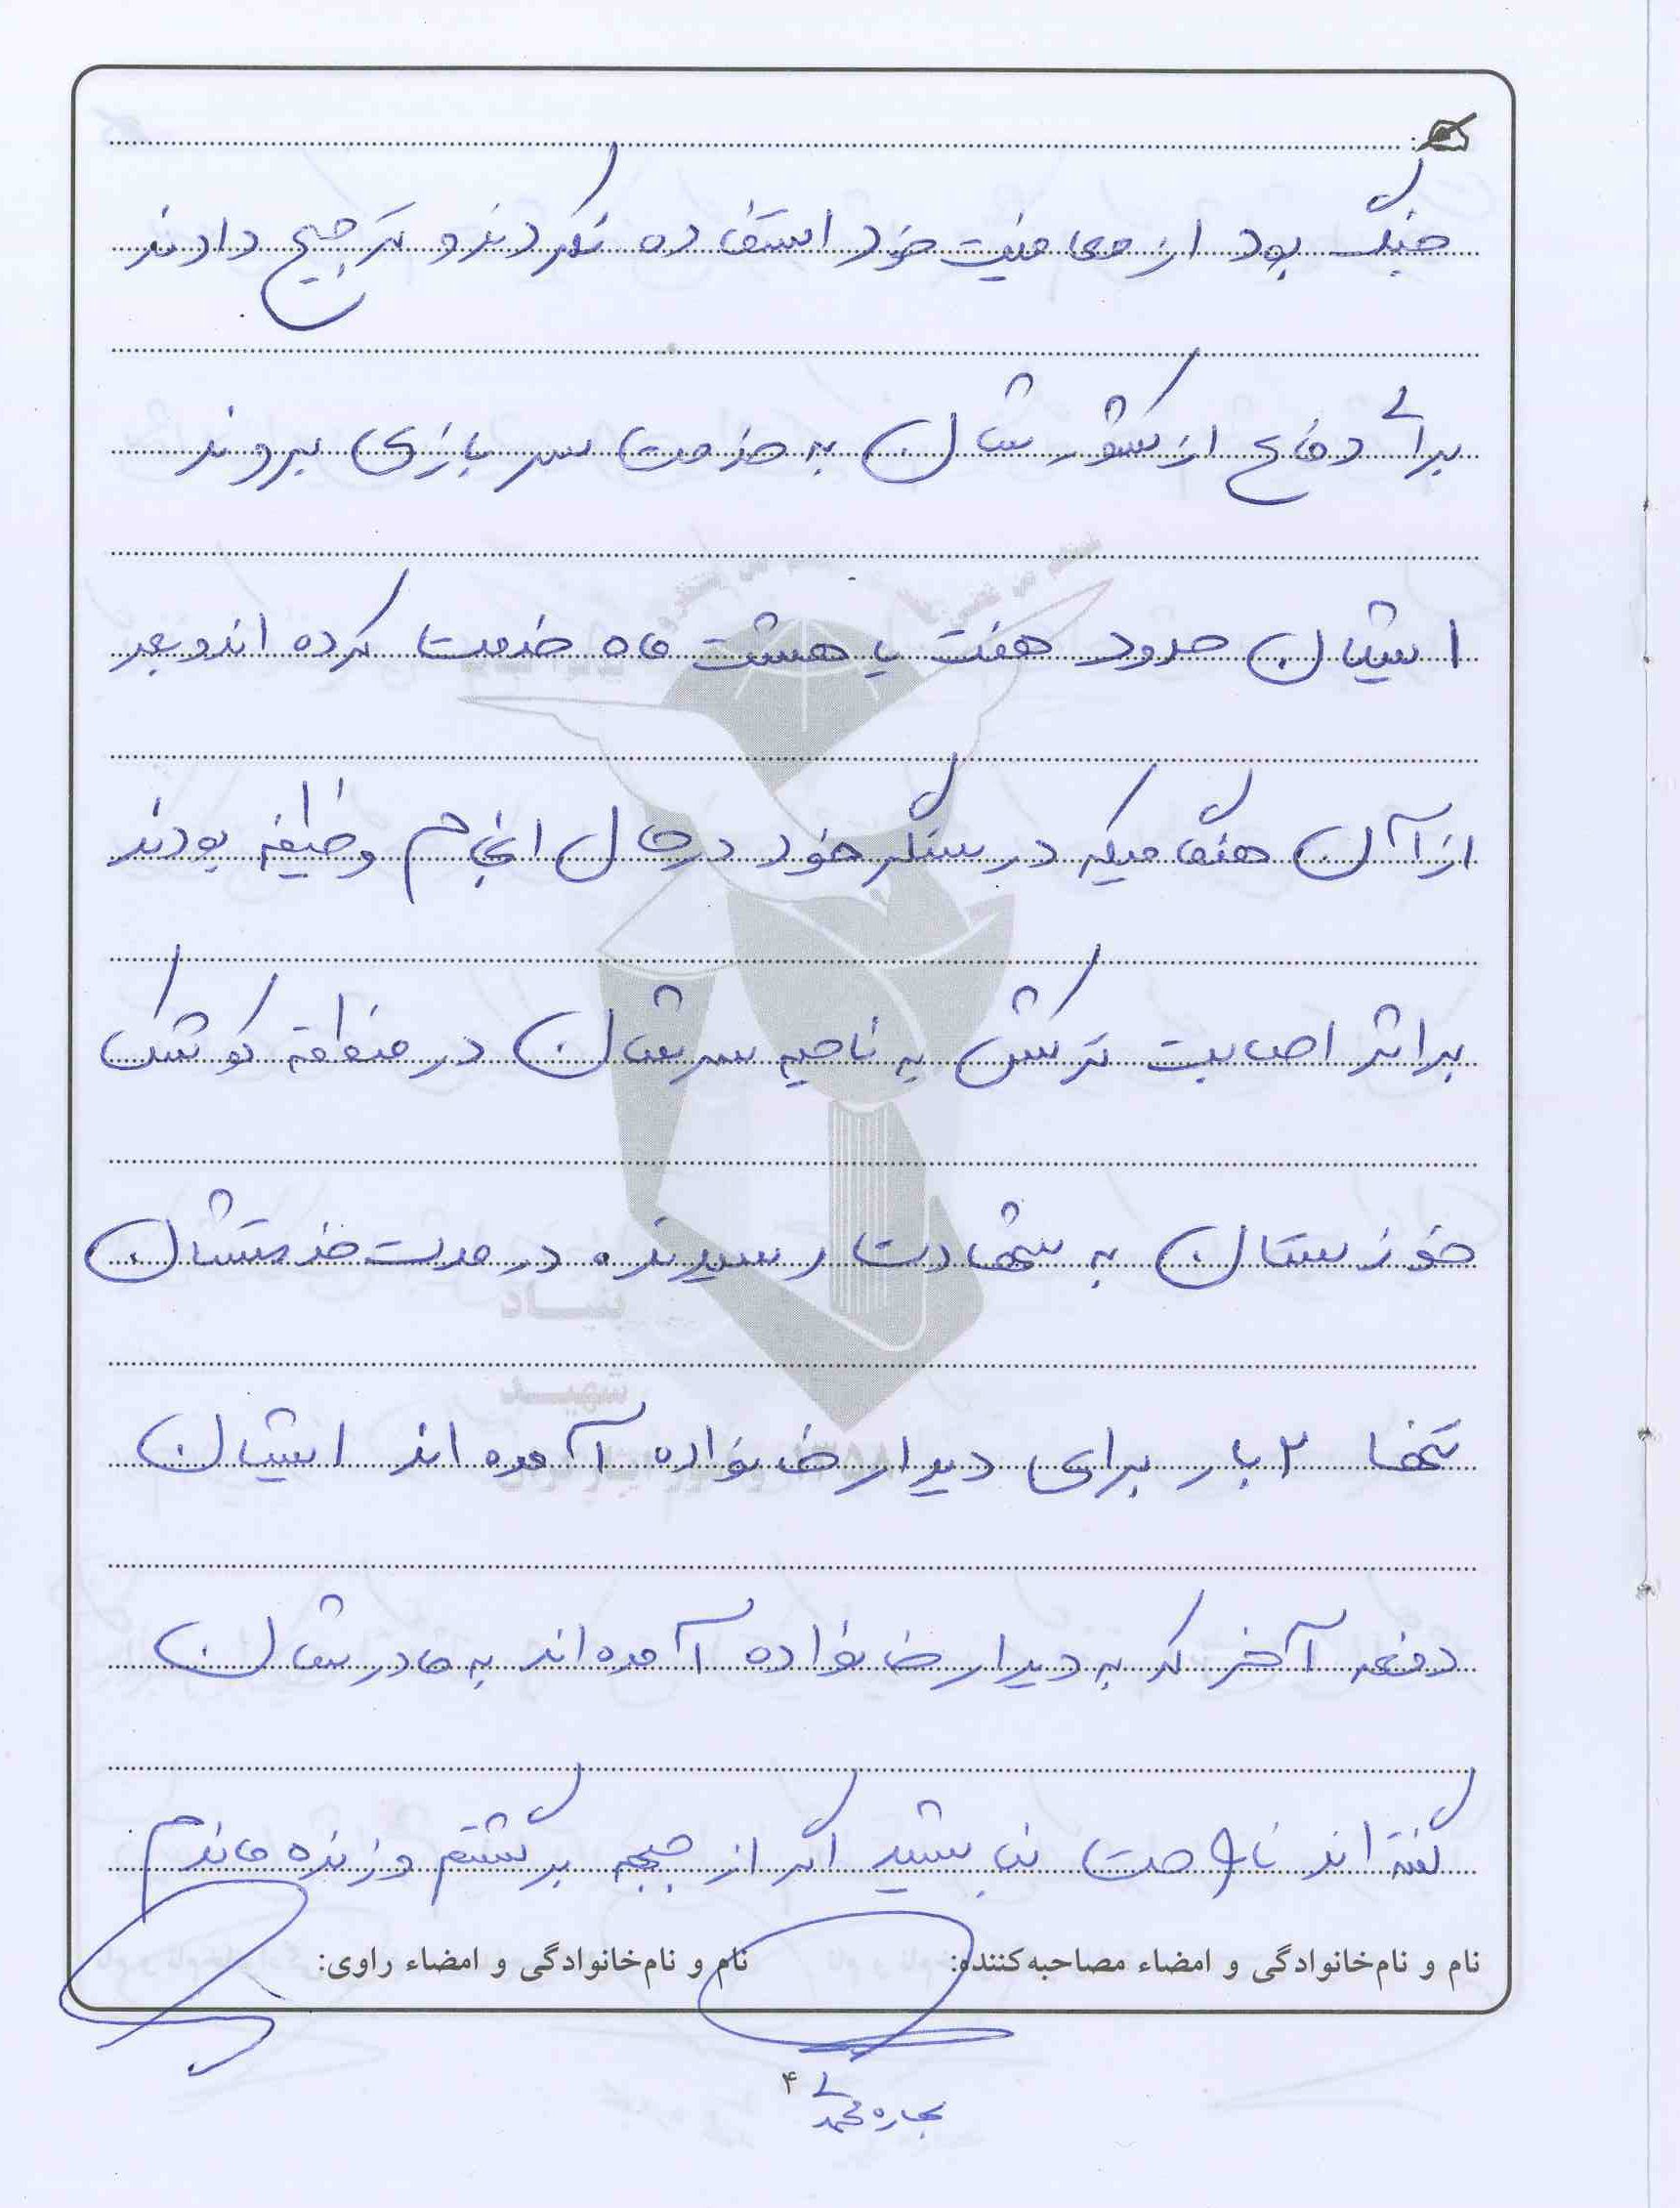 جنگ بود از معافیت خود استفاده نکردند و ترجیح دادند
برائے دفاع از کشورشان به خدمت سربازی بروند
ایشان حدود هفت یا هشت ماه خدمت کرده اند و بعد
از آن هنگامیکه در سنگر خود در حال انجام وظیفه بودند
بر اثر اصابت ترکش به ناحیه سرشان در منطقه کوشک
خوزستان به شهادت رسیدند در مدت خدمتشان
تنها ۲ بار برای دیدار خانواده آمده اند ایشان
دفعه آخر که به دیدار خانواده آمده اند به مادرشان
گفته اند ناراحت نباشید اگر از جبهه برگشتم و زنده ماندم
نام و نام‌خانوادگی و امضاء مصاحبه‌کننده: نام و نام‌خانوادگی و امضاء راوی:
۴
بنیاد
شهید